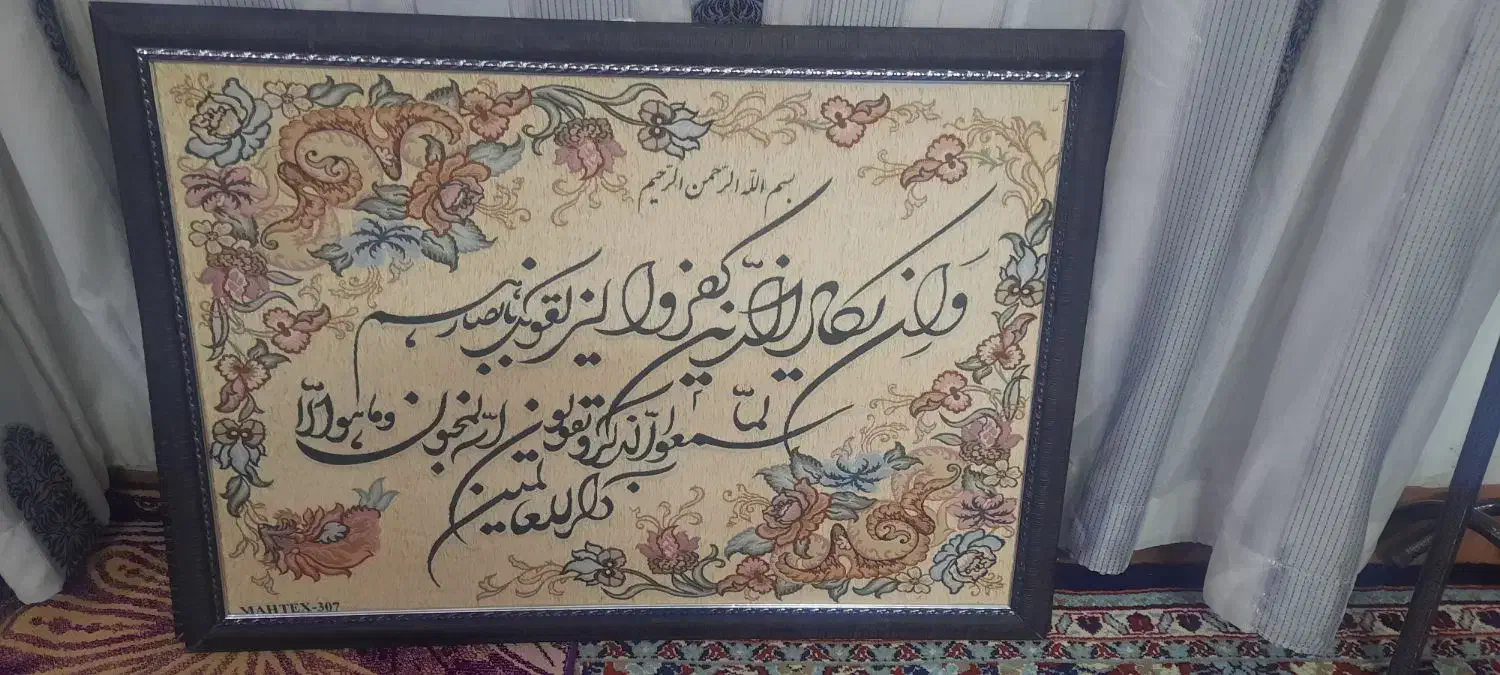 بسم الله الرّحمن الرّحيم
وَاِن يكاد الّذين كفروا ليزلقونك بابصارهم
لمّا سمعوا الّذكر و يقولون انّه لمجنون و ما هو الّا
ذكر للعالمين
MAHTEX-307